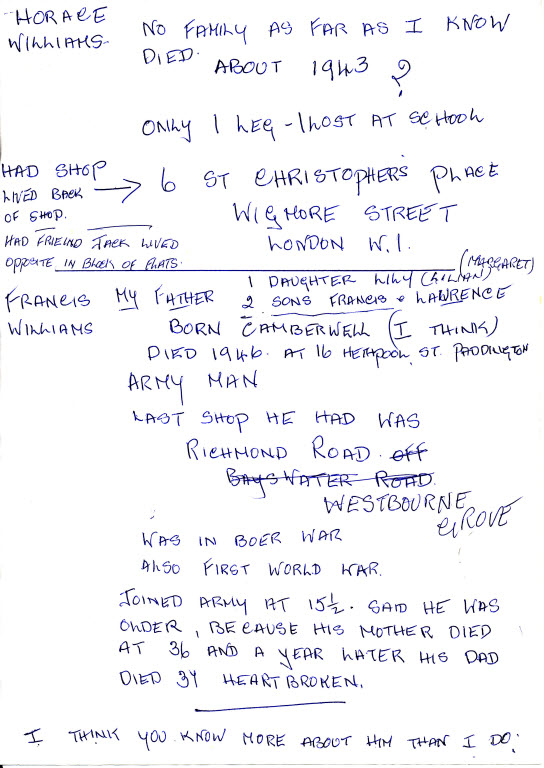 HORACE WILLIAMS
NO FAMILY AS FAR AS I KNOW
DIED.
ABOUT 1943 ?
ONLY 1 LEG - 1 LOST AT SCHOOL
HAD SHOP
LIVED BACK
OF SHOP.
→ 6 ST CHRISTOPHERS PLACE
WIGMORE STREET
LONDON W.1.
HAD FRIEND JACK LIVED
OPPOSITE IN BLOCK OF FLATS.
FRANCIS WILLIAMS
MY FATHER
1 DAUGHTER LILY (LILIAN) (MARGARET)
2 SONS FRANCIS & LAWRENCE
BORN CAMBERWELL (I THINK)
DIED 1946. AT 16 HETHPOOL ST. PADDINGTON
ARMY MAN
LAST SHOP HE HAD WAS
RICHMOND ROAD. off
BAYSWATER ROAD.
WESTBOURNE
GROVE
WAS IN BOER WAR
ALSO FIRST WORLD WAR.
JOINED ARMY AT 15½. SAID HE WAS
OLDER, BECAUSE HIS MOTHER DIED
AT 36 AND A YEAR LATER HIS DAD
DIED 37 HEARTBROKEN.
I THINK YOU KNOW MORE ABOUT HIM THAN I DO.